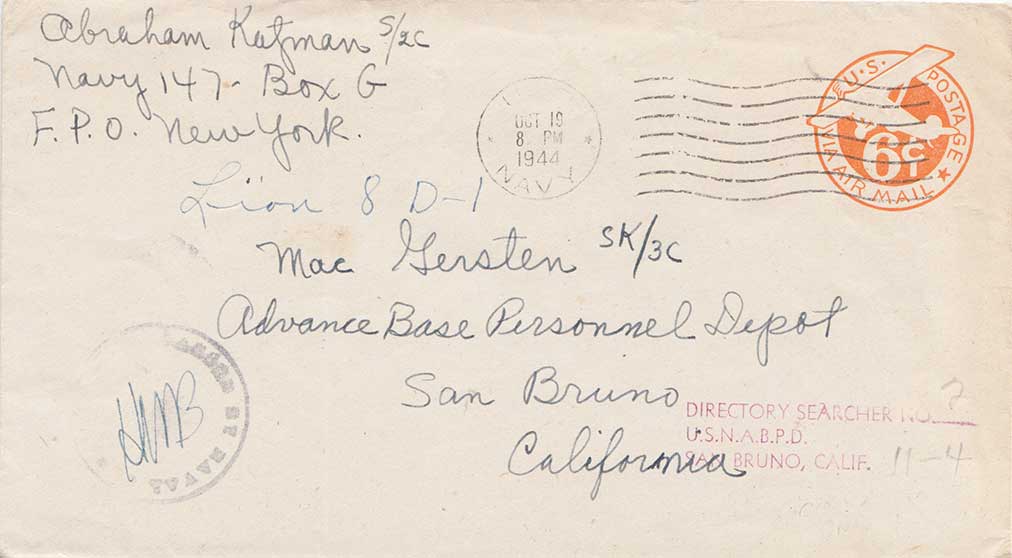 Abraham Katzman S/2C
Navy 147 - Box G
F.P.O. New York.
OCT 19
8 PM
1944
NAVY
U.S. POSTAGE
6¢
VIA AIR MAIL
Lion 8 D-1
Mac Gersten SK/3C
Advance Base Personnel Depot
San Bruno
California
PASSED BY NAVAL
HWB
DIRECTORY SEARCHER NO. 2
U.S.N.A.B.P.D.
SAN BRUNO, CALIF. 11-4